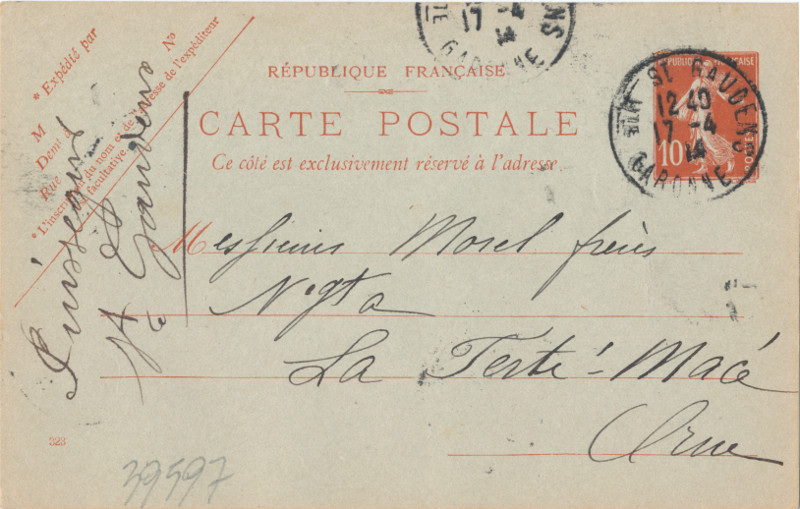 * Expédié par
M
Demt à
Rue
N°
* L'inscription du nom et de l'adresse de l'expéditeur
est facultative.
Puissegur
à St Gaudens
17 -4
14
GARONNE
RÉPUBLIQUE FRANÇAISE
CARTE POSTALE
Ce côté est exclusivement réservé à l'adresse
ST GAUDENS
12 40
17 -4
14
HTE GARONNE
10
POSTES
Messieurs Morel frères
Nègts
La Ferté-Macé
Orne
323
39597